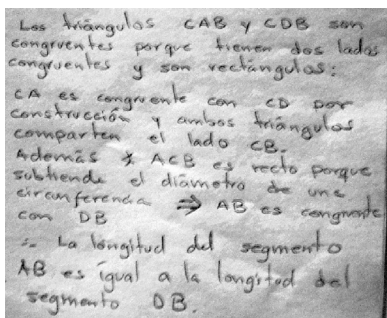 Los triángulos CAB y CDB son
congruentes porque tienen dos lados
congruentes y son rectángulos:
CA es congruente con CD por
construcción y ambos triángulos
comparten el lado CB.
Además ∡ ACB es recto porque
subtiende el diámetro de una
circunferencia ⇒ AB es congruente
con DB
∴ La longitud del segmento
AB es igual a la longitud del
segmento DB.